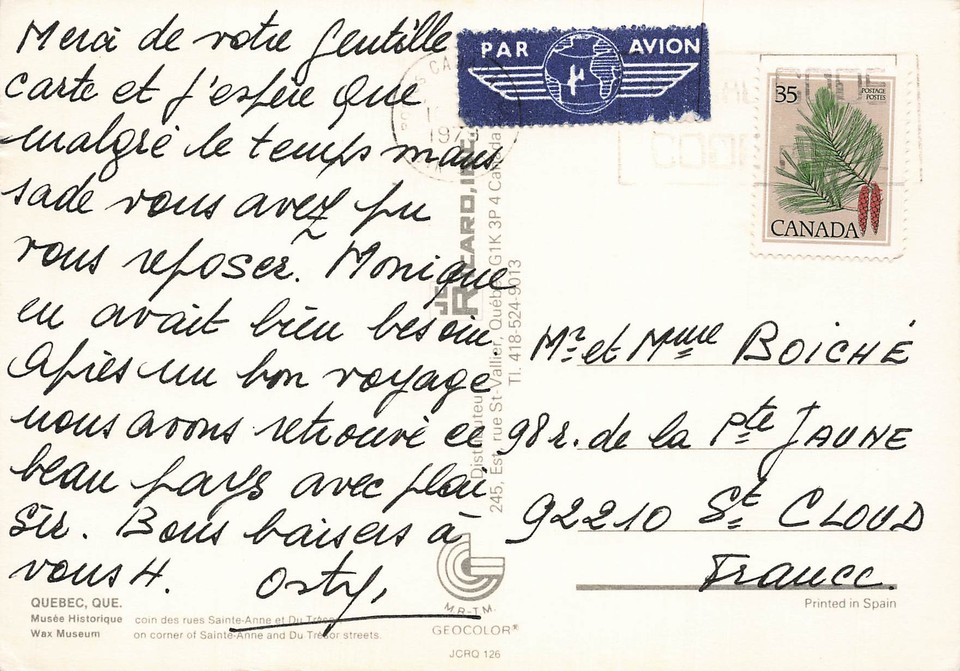 Merci de votre gentille
carte et j'espère que
malgré le temps maus
sade vous avez pu
vous reposer. Monique
en avait bien besoin.
Après un bon voyage
nous avons retrouvé ce
beau pays avec plai
sir. Bons baisers à
vous 4.
PAR AVION
197
35
POSTAGE
POSTES
CANADA
CARD, INC.
Distributeur
245, Est, rue St-Vallier, Québec G1K 3P4 Canada
Tl. 418-524-9013
Mr et Mme BOICHÉ
98 r. de la Pte JAUNE
92210 St CLOUD
France.
QUEBEC, QUE.
Musée Historique coin des rues Sainte-Anne et Du Trésor
Wax Museum on corner of Sainte-Anne and Du Trésor streets.
M.R-T.M.
GEOCOLOR®
JCRQ 126
Printed in Spain